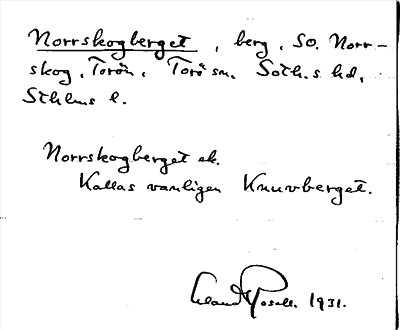 Norrskogberget, berg, SO. Norr-
skog, Torön, Torö sn. Soth.s hd,
Sthlms l.
Norrskogberget ek.
Kallas vanligen Knuvberget.
1931.